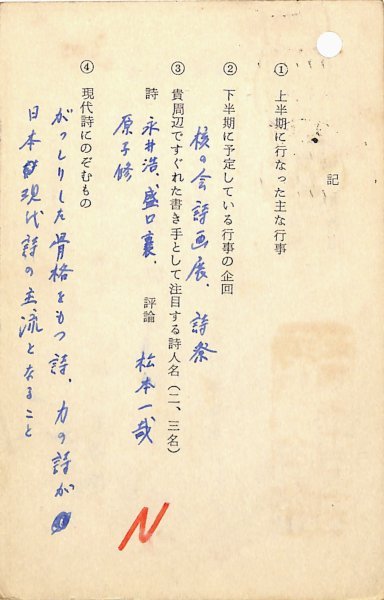 記
① 上半期に行なった主な行事
② 下半期に予定している行事の企回
核の会詩画展、詩祭
③ 貴周辺ですぐれた書き手として注目する詩人名（二、三名）
詩 永井浩、盛口襄、 評論 松本一哉
原子修
④ 現代詩にのぞむもの
がっしりした骨格をもつ詩、力の詩が
日本現代詩の主流となること
N